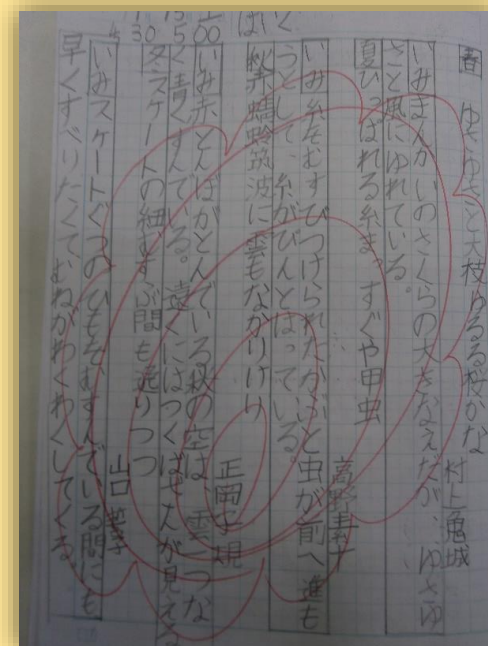 春 ゆさゆさと大枝ゆるる桜かな
村上鬼城
いみまんかいのさくらの大きなえだが、ゆさゆ
さと風にゆれている。
夏ひっぱれる糸まっすぐや甲虫
高野素十
いみ糸をむすびつけられたかぶと虫が前へ進も
うとして、糸がぴんとはっている。
秋赤蜻蛉筑波に雲もなかりけり
正岡子規
いみ赤とんぼがとんでいる秋の空は、雲一つな
く青くすんでいる。遠くにはつくばさんが見える
冬スケートの紐むすぶ間も逸りつつ
山口誓子
いみスケートぐつのひもをむすんでいる間にも
早くすべりたくて、むねがわくわくしてくる。